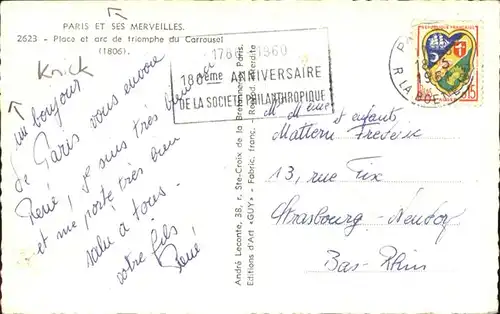 PARIS ET SES MERVEILLES.
2623 - Place et arc de triomphe du Carrousel
(1806).
Knick
un bonjour
de Paris vous envoie
René, je suis très bien
et me porte très bien
salu a tous.
votre fils
René
1780 1960
180ème ANNIVERSAIRE
DE LA SOCIETE PHILANTHROPIQUE
André Leconte, 38, r. Ste-Croix de la Bretonnerie, Paris.
Editions d'Art «GUY» - Fabric. franç. - Reprod. interdite
R. LA BOETIE
M. Mme et enfants
Mattern Frederic
13, rue
Strasbourg - Neudorf
Bas-Rhin